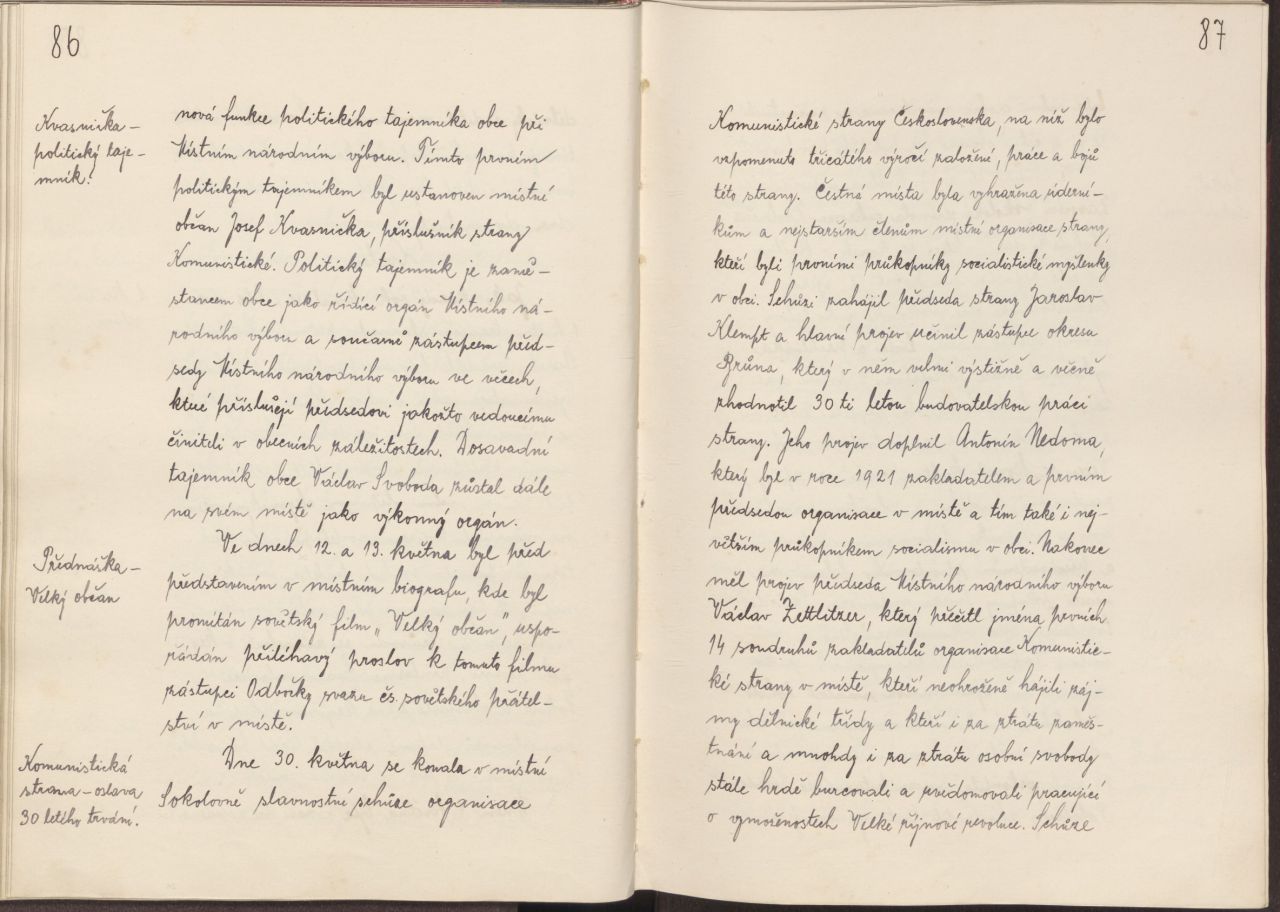 86
Kvasnička –
politický taje-
mník.
nová funkce politického tajemníka obce při
Místním národním výboru. Tímto prvním
politickým tajemníkem byl ustanoven místní
občan Josef Kvasnička, příslušník strany
Komunistické. Politický tajemník je zamě-
stancem obce jako řídící orgán Místního ná-
rodního výboru a současně zástupcem před-
sedy Místního národního výboru ve věcech,
které příslušejí předsedovi jakožto vedoucímu
činiteli v obecních záležitostech. Dosavadní
tajemník obce Václav Svoboda zůstal dále
na svém místě jako výkonný orgán.
Přednáška –
Velký občan
Ve dnech 12. a 13. května byl před
představením v místním biografu, kde byl
promítán sovětský film „Velký občan", uspo-
řádán přiléhavý proslov k tomuto filmu
zástupci Odbočky svazu čs. sovětského přátel-
ství v místě.
Komunistická
strana – oslava
30 letého trvání.
Dne 30. května se konala v místní
Sokolovně slavnostní schůze organisace
87
Komunistické strany Československa, na níž bylo
vzpomenuto třicátého výročí založení, práce a bojů
této strany. Čestná místa byla vyhražena úderní-
kům a nejstarším členům místní organisace strany,
kteří byli prvními průkopníky socialistické myšlenky
v obci. Schůzi zahájil předseda strany Jaroslav
Klempt a hlavní projev učinil zástupce okresu
Brůna, který v něm velmi výstižně a věcně
zhodnotil 30 ti letou budovatelskou práci
strany. Jeho projev doplnil Antonín Nedoma,
který byl v roce 1921 zakladatelem a prvním
předsedou organisace v místě a tím také i nej-
větším průkopníkem socialismu v obci. Nakonec
měl projev předseda Místního národního výboru
Václav Zettlitzer, který přečetl jména prvních
14 soudruhů zakladatelů organisace Komunistic-
ké strany v místě, kteří neohroženě hájili záj-
my dělnické třídy a kteří i za ztrátu zaměs-
tnání a mnohdy i za ztrátu osobní svobody
stále hrdě burcovali a uvědomovali pracující
o vymoženostech Velké říjnové revoluce. Schůze